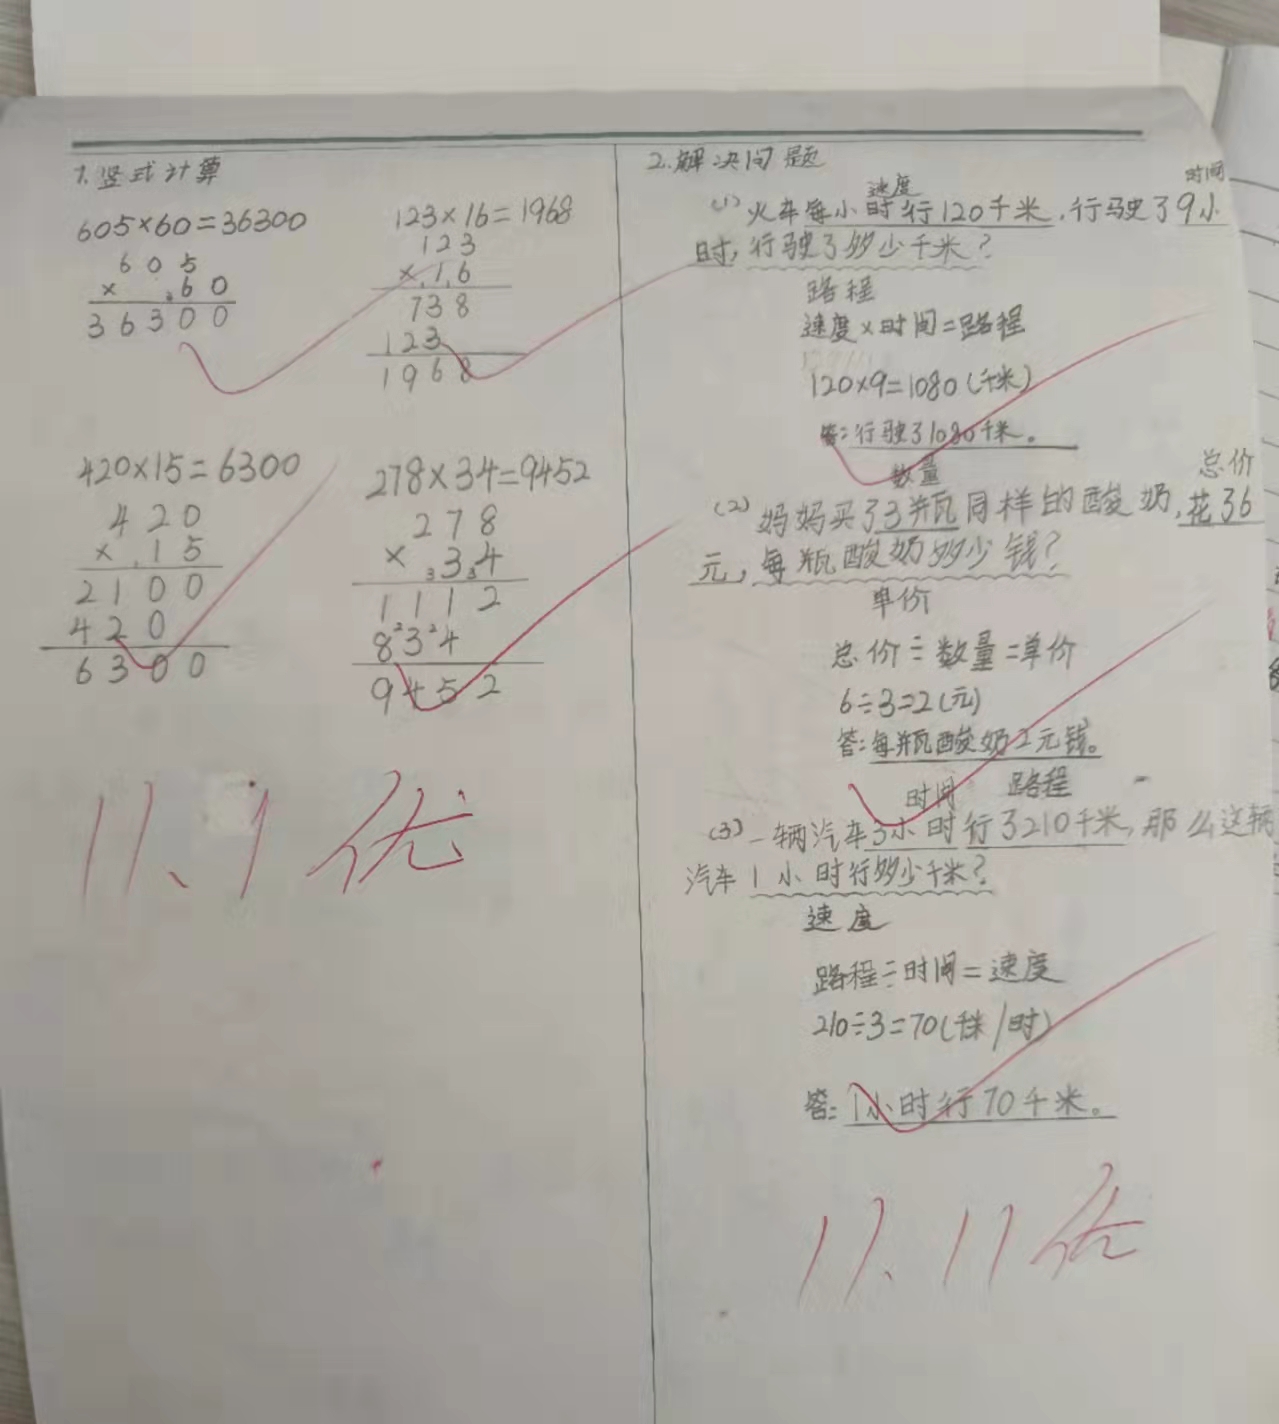 1.竖式计算
605×60=36300
605
×60
36300
123×16=1968
123
×16
738
123
1968
420×15=6300
420
×15
2100
420
6300
278×34=9452
278
×34
1112
834
9452
11、1 优
2.解决问题
速度
时间
(1)火车每小时行120千米,行驶了9小
时,行驶了多少千米?
路程
速度×时间=路程
120×9=1080(千米)
答:行驶了1080千米。
数量
总价
(2)妈妈买了3瓶同样的酸奶,花了6
元,每瓶酸奶多少钱?
单价
总价÷数量=单价
6÷3=2(元)
答:每瓶酸奶2元钱。
时间 路程
(3)一辆汽车3小时行了210千米,那么这辆
汽车1小时行多少千米?
速度
路程÷时间=速度
210÷3=70(千米/时)
答:1小时行70千米。
11、11优